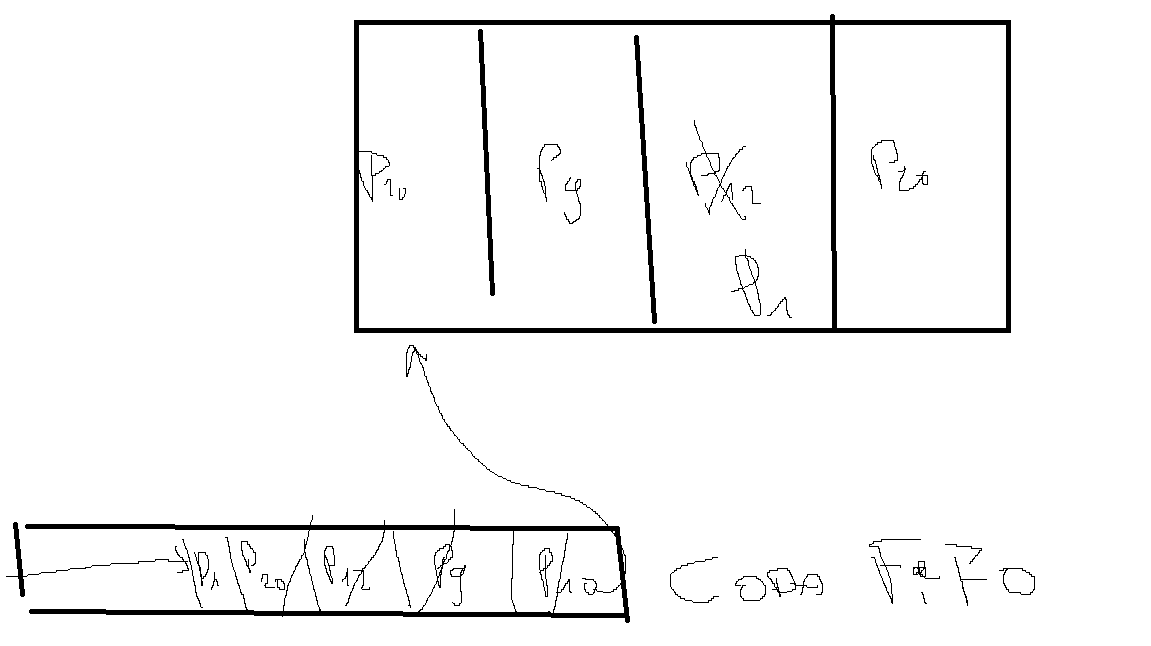 P10 P9 P12 P20
P1
P1 P20 P12 P9 P10 CODA FIFO